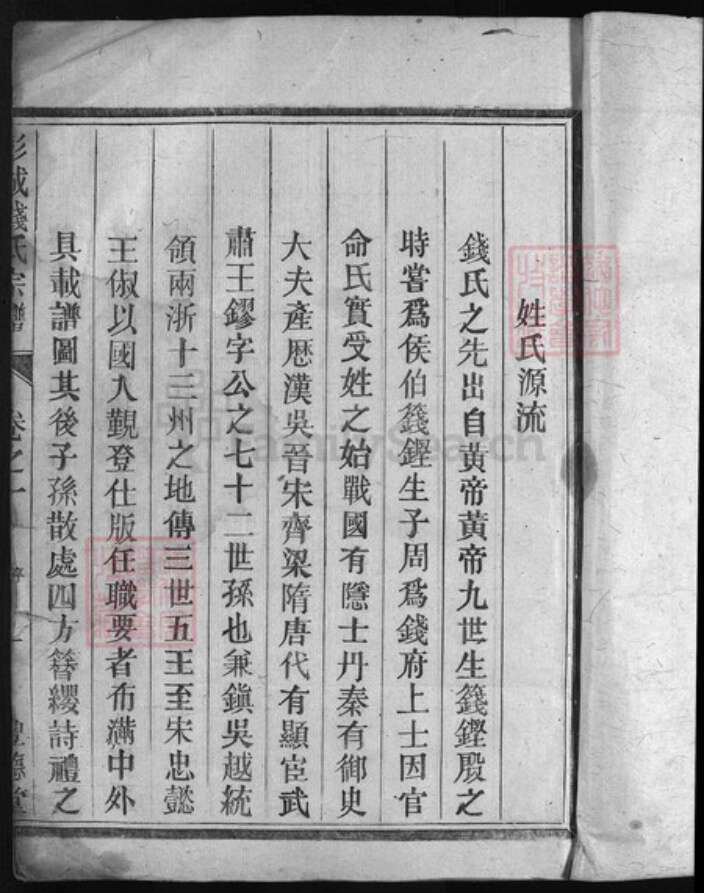 姓氏源流
錢氏之先出自黃帝黃帝九世生籛鏗殷之
時嘗爲侯伯籛鏗生子周爲錢府上士因官
命氏實受姓之始戰國有隱士丹秦有御史
大夫產歷漢吳晉宋齊梁隋唐代有顯宦武
肅王鏐字公之七十二世孫也兼鎮吳越統
領兩浙十三州之地傳三世五王至宋忠懿
王俶以國入覲登仕版任職要者布滿中外
具載譜圖其後子孫散處四方簪纓詩禮之
彭城錢氏宗譜 卷之一
FamilySearch